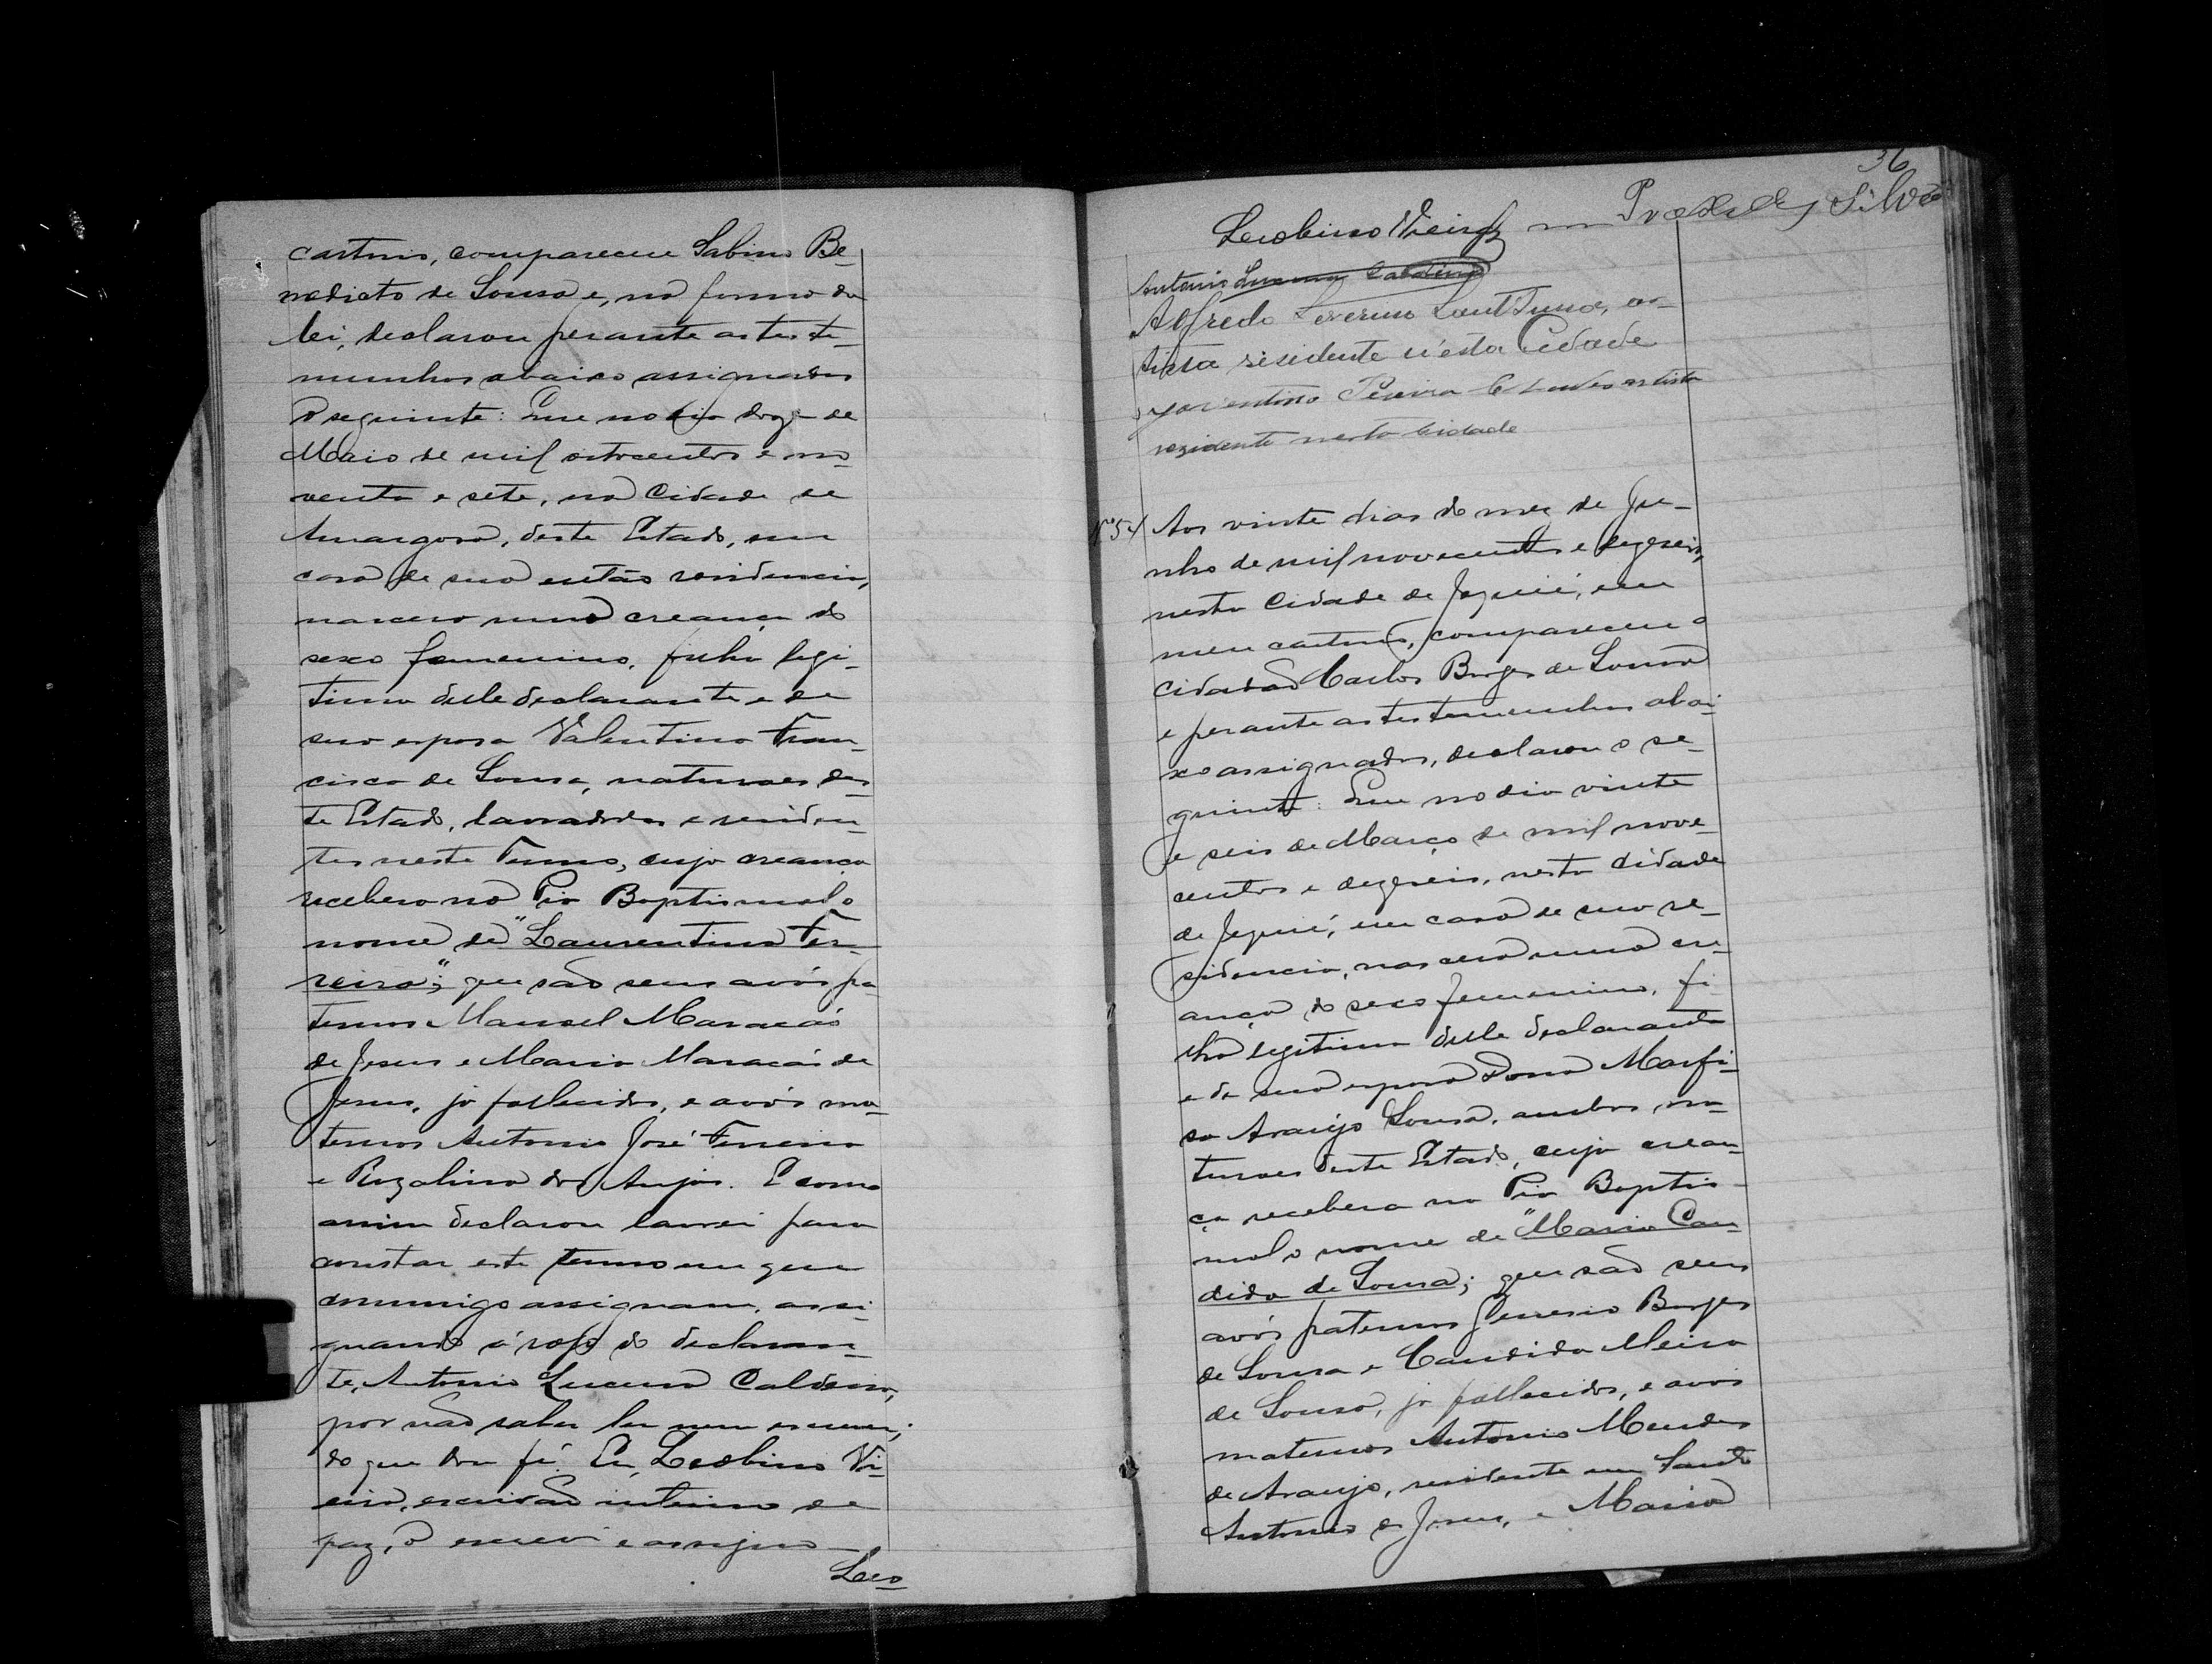 cartorio, compareceu Sabino Be-
nedicto de Sousa e, na forma da
lei, declarou perante as teste-
munhas abaixo assignadas
o seguinte: Que no dia doze de
Maio de mil oitocentos e no-
venta e sete, na Cidade de
Amargosa, deste Estado, em
casa de sua então residencia,
nascera uma creança do
sexo femenino, filha legi-
tima delle declarante e de
sua esposa Valentina Fran-
cisca de Sousa, naturaes des-
te Estado, lavradores e residen-
tes neste Termo, cuja creança
recebera na Pia Baptismal o
nome de "Laurentina Fer-
reira"; que são seus avós pa-
ternos Manoel Maracás
de Jesus e Maria Maracás de
Jesus, já fallecidos, e avós ma-
ternos Antonio José Ferreira
e Rozalina dos Anjos. E como
assim declarou lavrei para
constar este termo em que
commigo assignam, assi-
gnando á rogo do declaran-
te, Antonio Lucena Caldeira,
por não saber ler nem escrever;
do que dou fé. Eu, Leobino Vi-
eira, escrivão interino de
paz, o escrevi e assigno
Leo-
36
Silva
Leobino Vieira
Antonio Lucena Caldeira
Alfredo Severino Sant'Anna, ar-
tista residente n'esta Cidade
Pereira artista
rezidente nesta Cidade
Nº 54 Aos vinte dias do mez de Ju-
nho de mil novecentos e dezeseis,
nesta Cidade de Jequié, em
meu cartorio, compareceu o
cidadão Carlos Borges de Sousa
e perante as testemunhas abai-
xo assignadas, declarou o se-
guinte: Que no dia vinte
e seis de Março de mil nove-
centos e dezeseis, nesta cidade
de Jequié, em casa de sua re-
sidencia, nascera uma cre-
ança do sexo femenino, fi-
lha legitima delle declarante
e de sua esposa Dona Marfi-
sa Araujo Sousa, ambos na-
turaes deste Estado, cuja crean-
ça recebera na Pia Baptis-
mal o nome de "Maria Can-
dida de Sousa; que são seus
avós paternos Genesio Borges
de Sousa e Candida Meira
de Sousa, já fallecidos, e avós
maternos Antonio Mendes
de Araujo, residente em Santo
Antonio de Jesus, e Maria